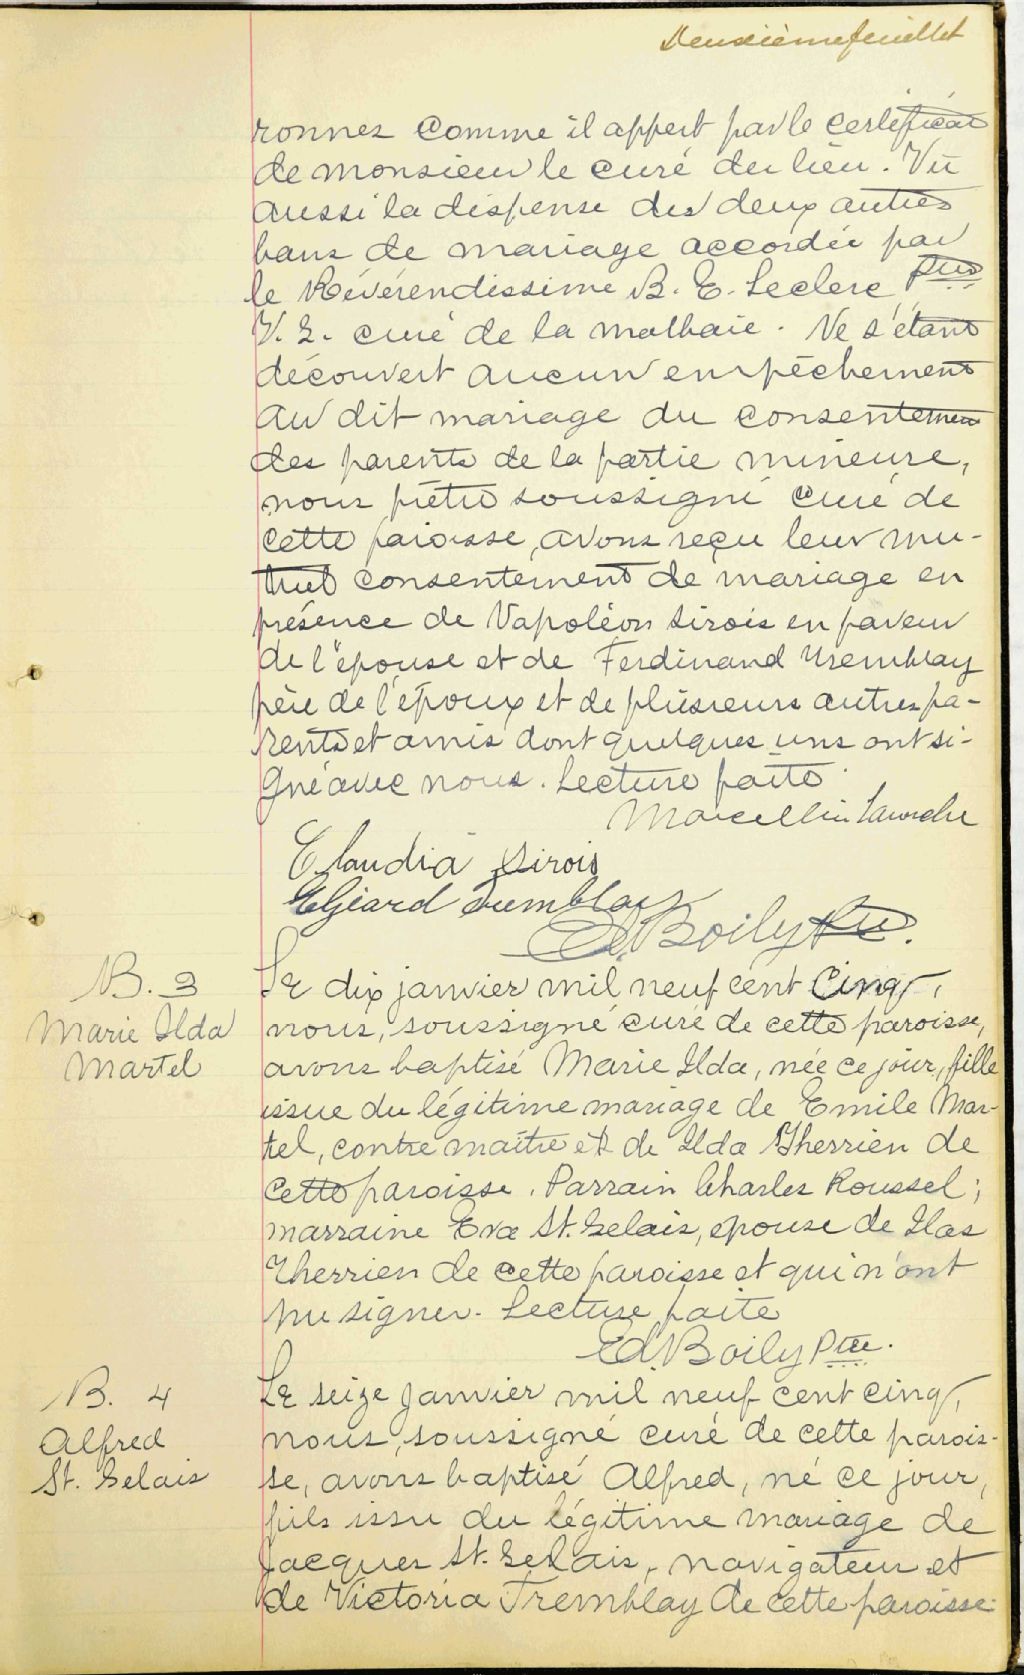 Deuxième feuillet
ronnes comme il appert par le certificat
de monsieur le curé du lieu. Vu
aussi la dispense des deux autres
bans de mariage accordée par
le Révérendissime B. E. Leclerc Ptre
V. G. curé de la malbaie. Ne s'étant
découvert aucun empêchement
au dit mariage du consentement
des parents de la partie mineure,
nous prêtre soussigné curé de
cette paroisse, avons reçu leur mu-
tuel consentement de mariage en
présence de Napoléon Sirois en faveur
de l'épouse et de Ferdinand Tremblay
père de l'époux et de plusieurs autres pa-
rents et amis dont quelques uns ont si-
gné avec nous. Lecture faite
Marcellin
Claudia Sirois
Tremblay
Ed. Boily Ptre.
B. 3
Marie Ilda
Martel
Le dix janvier mil neuf cent cinq,
nous, soussigné curé de cette paroisse,
avons baptisé Marie Ilda, née ce jour, fille
issue du légitime mariage de Emile Mar-
tel, contre maître et de Ilda Therrien de
cette paroisse. Parrain Charles Roussel;
marraine Eva St. Gelais, épouse de
Therrien de cette paroisse et qui n'ont
pu signer. Lecture faite
Ed. Boily Ptre.
B. 4
Alfred
St. Gelais
Le seize janvier mil neuf cent cinq,
nous, soussigné curé de cette parois-
se, avons baptisé Alfred, né ce jour,
fils issu du légitime mariage de
Jacques St. Gelais, navigateur et
de Victoria Tremblay de cette paroisse